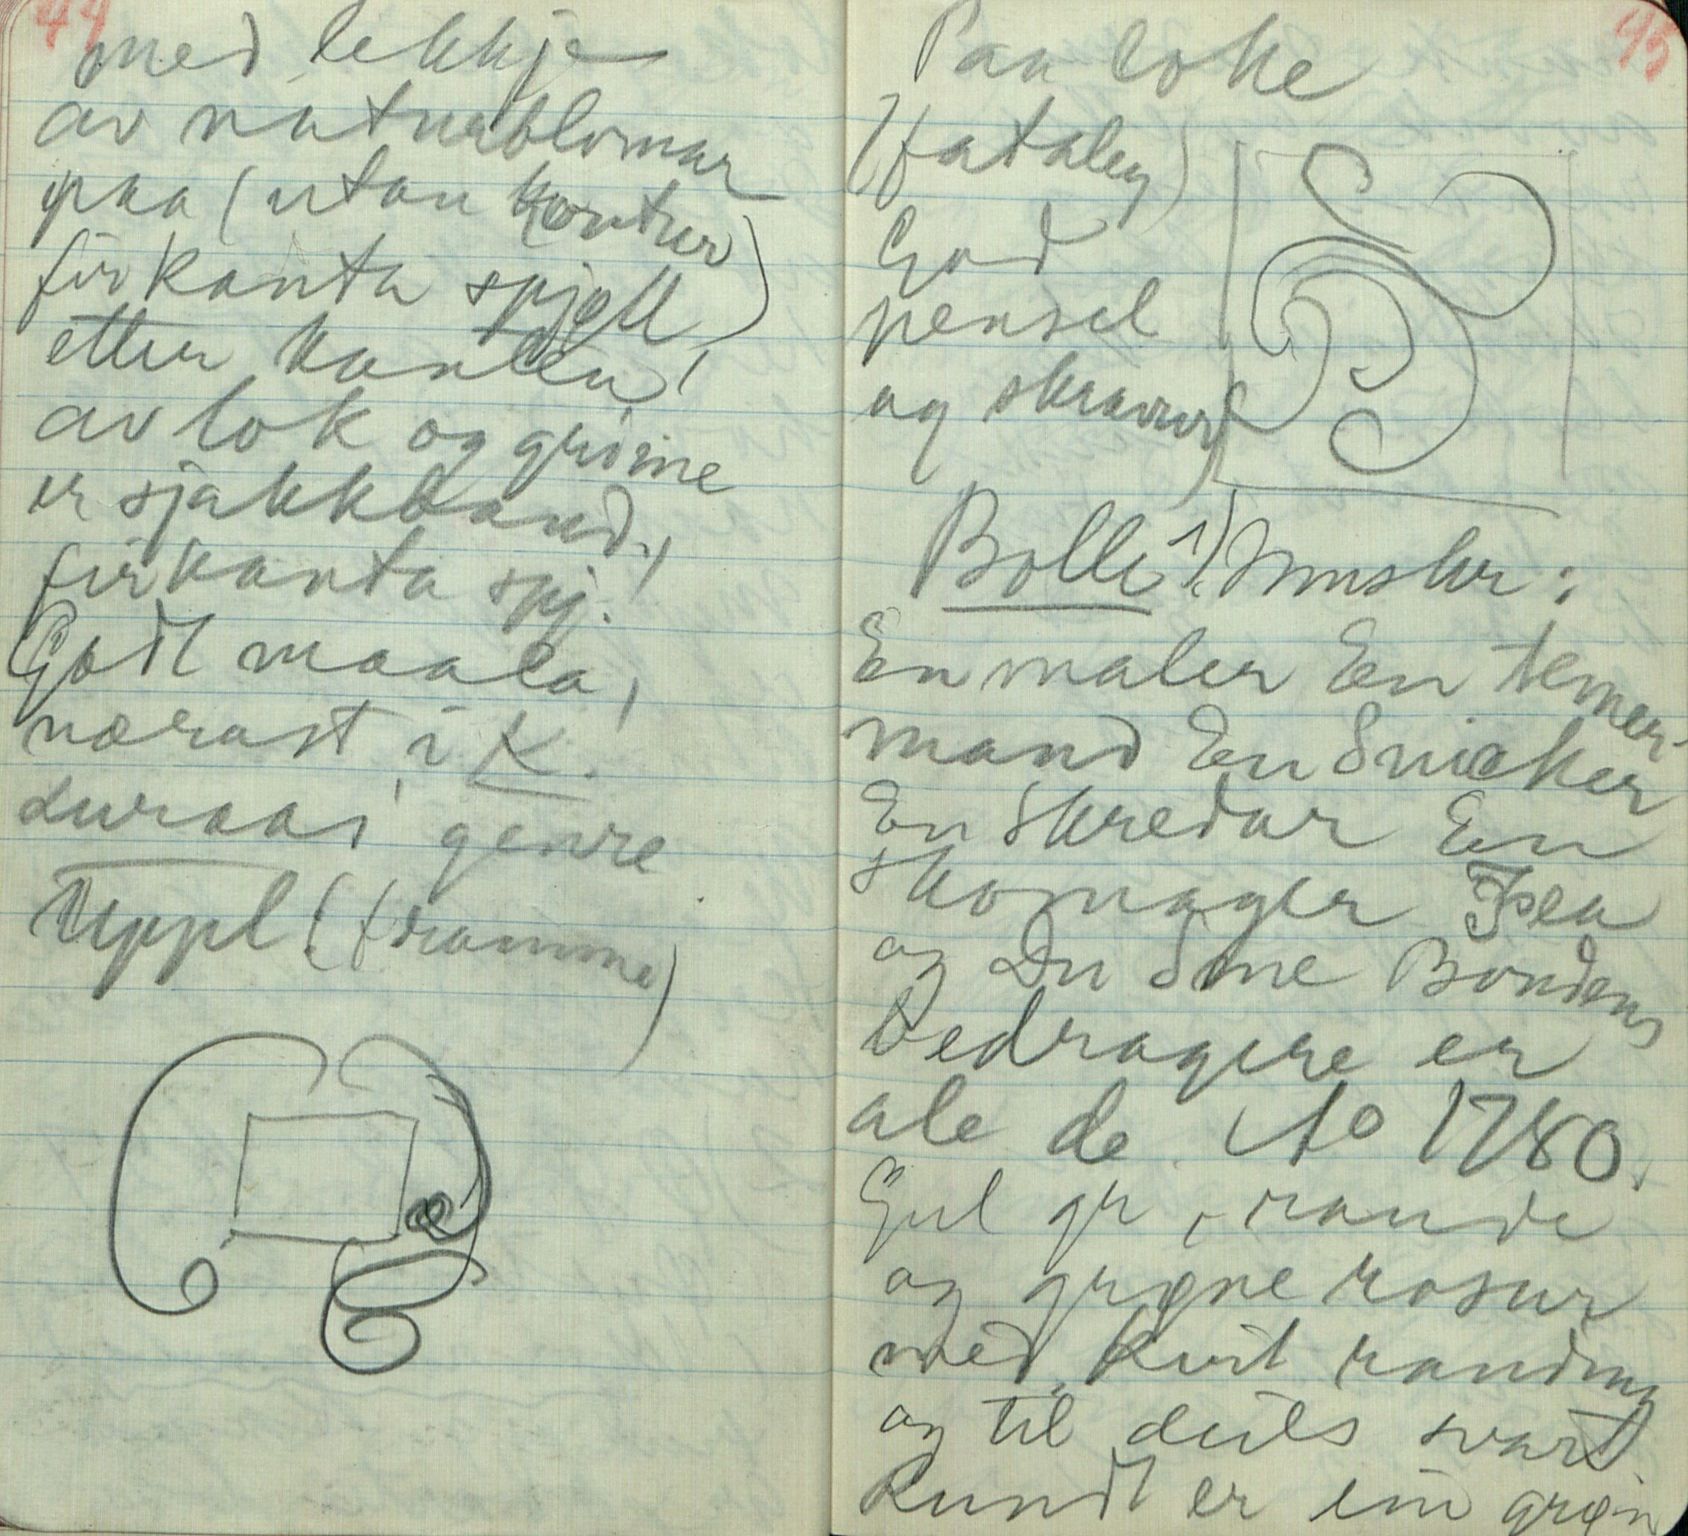 44
med lekkje
av naturblomar
paa (utan kontur)
firkanta spjeld
etter kanten,
av lok og grime
er sjakkband,
firkanta spj.
Godt maala,
nærast i K.
duraas genre
Uppl (framme)
45
Paa loke
God
pensel
og skravur)
Bolle 1) Mønster:
En maler En temer-
mand En Snicker
En Skredar En
skomager Fea
og Du Sme Bondens
bedragere er
ale de Ao 1780.
Gul gr, rande
og grøne rosur
med kvit randing
og til deils svart
Rundt er ein grøn